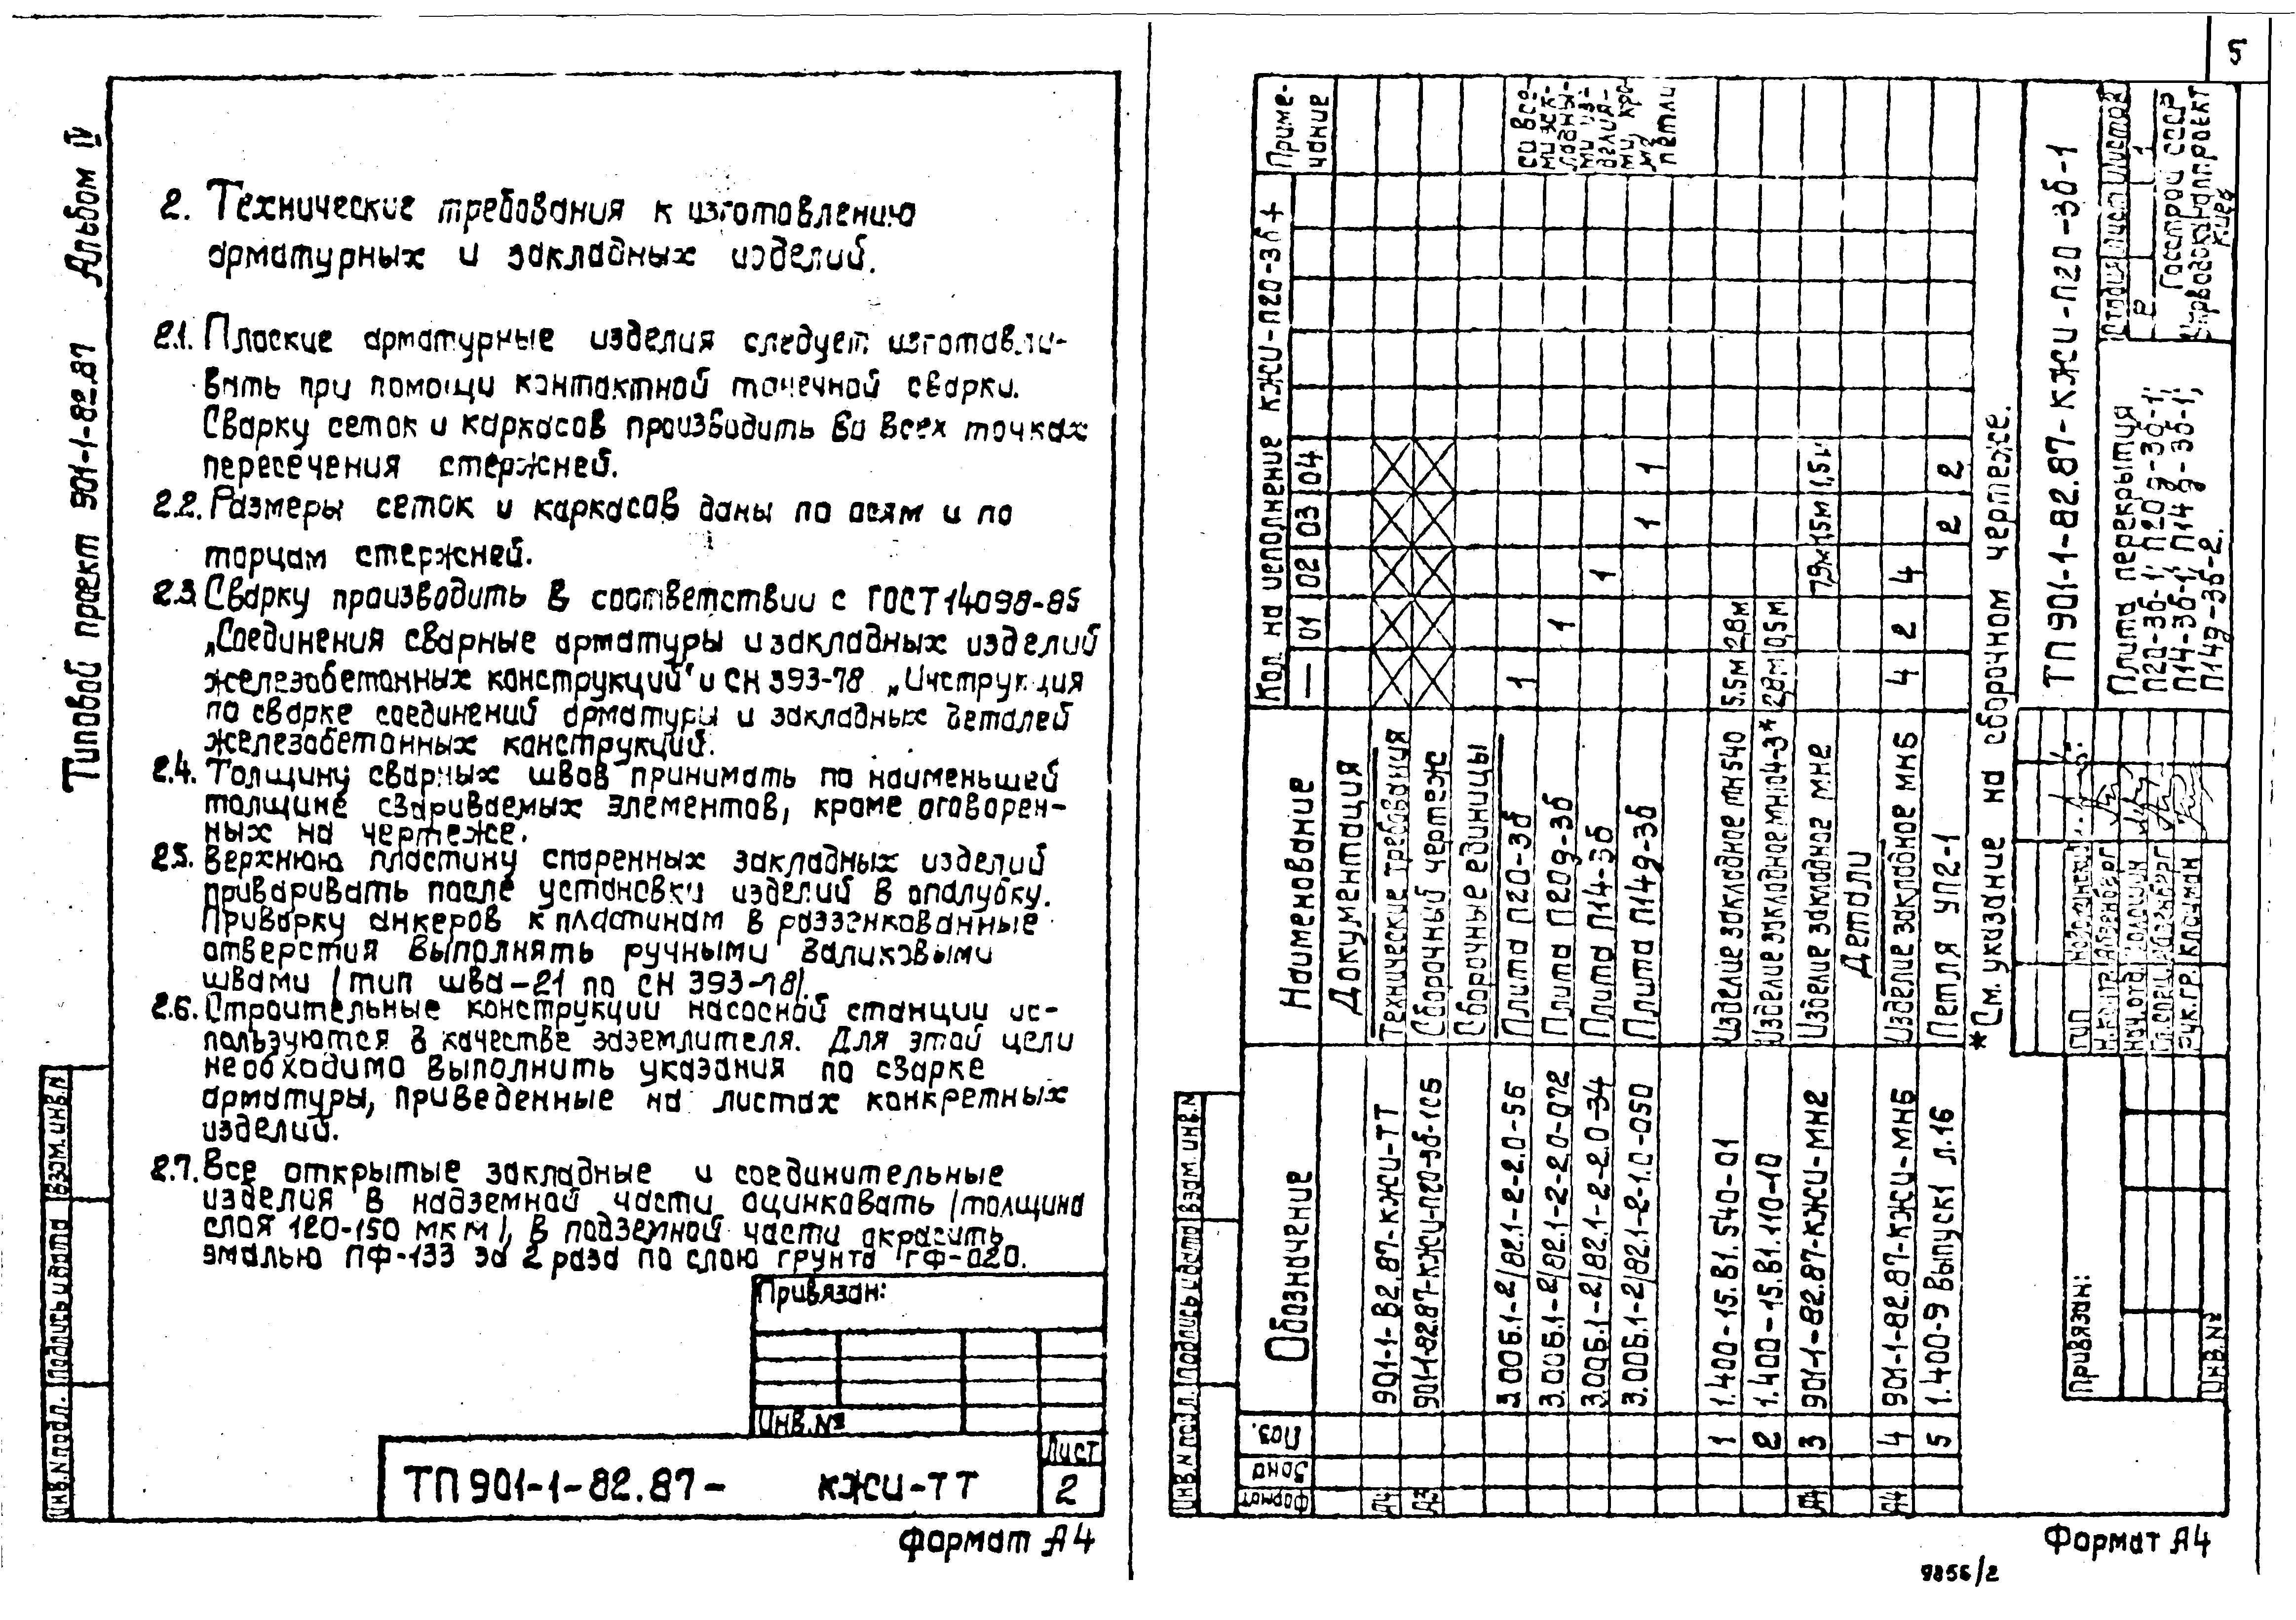 5
Типовой проект 901-1-82.87 Альбом IV
2. Технические требования к изготовлению
арматурных и закладных изделий.
2.1. Плоские арматурные изделия следует изготавли-
вать при помощи контактной точечной сварки.
Сварку сеток и каркасов производить во всех точках
пересечения стержней.
2.2. Размеры сеток и каркасов даны по осям и по
торцам стержней.
2.3. Сварку производить в соответствии с ГОСТ 14098-85
„Соединения сварные арматуры и закладных изделий
железобетонных конструкций" и СН 393-78 „Инструкция
по сварке соединений арматуры и закладных деталей
железобетонных конструкций.
2.4. Толщину сварных швов принимать по наименьшей
толщине свариваемых элементов, кроме оговорен-
ных на чертеже.
2.5. Верхнюю пластину спаренных закладных изделий
приваривать после установки изделий в опалубку.
Приварку анкеров к пластинам в раззенкованные
отверстия выполнять ручными валиковыми
швами /тип шва-21 по СН 393-78/.
2.6. Строительные конструкции насосной станции ис-
пользуются в качестве заземлителя. Для этой цели
необходимо выполнить указания по сварке
арматуры, приведенные на листах конкретных
изделий.
2.7. Все открытые закладные и соединительные
изделия в надземной части оцинковать /толщина
слоя 120-150 мкм/, в подземной части окрасить
эмалью ПФ-133 за 2 раза по слою грунта ГФ-020.
Привязан:
Инв.№
ТП 901-1-82.87- КЖИ-ТТ
Лист
2
Формат А4
Инв.N подл. Подпись и дата Взам.инв.N
Формат Зона Поз. Обозначение Наименование Кол. на исполнение КЖИ-П20-3б+ Приме-
чание
— 01 02 03 04
Документация
А4 901-1-82.87-КЖИ-ТТ Технические требования
А3 901-1-82.87-КЖИ-П20-3б-1СБ Сборочный чертеж
Сборочные единицы
3.006.1-2/82.1-2-2.0-56 Плита П20-3б 1
3.006.1-2/82.1-2-2.0-072 Плита П20д-3б 1
3.006.1-2/82.1-2-2.0-34 Плита П14-3б 1
3.006.1-2/82.1-2-1.0-050 Плита П14д-3б 1 1
со все-
ми зак-
ладны-
ми из-
делия-
ми, кро-
ме
петли
1 1.400-15.В1.540-01 Изделие закладное МН540 5,5м 2,8м
2 1.400-15.В1.110-10 Изделие закладное МН104-3* 2,8м 0,5м
А4 3 901-1-82.87-КЖИ-МН2 Изделие закладное МН2 7,9м 1,5м 1,5м
Детали
А4 4 901-1-82.87-КЖИ-МН5 Изделие закладное МН5 4 2 4
5 1.400-9 Выпуск 1 л.16 Петля УП2-1 2 2
*См. указание на сборочном чертеже.
ТП 901-1-82.87-КЖИ-П20-3б-1
ГИП
Нач.отд.
Рук.гр. Клоцман
Плита перекрытия
П20-3б-1; П20д-3б-1;
П14-3б-1; П14д-3б-1;
П14д-3б-2.
Стадия Лист Листов
Р 1
Госстрой СССР
Укрводоканалпроект
Киев
Привязан:
Инв.№
Инв.N подл. Подпись и дата Взам.инв.N
Формат А4
9856/2